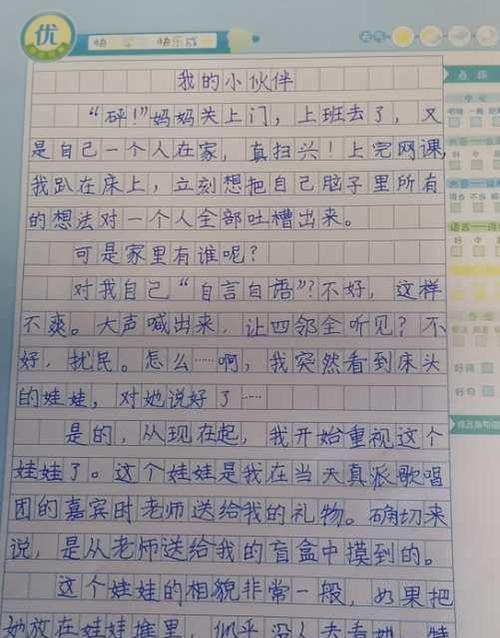 优
天气
我的小伙伴
“砰！”妈妈关上门，上班去了，又
是自己一个人在家，真扫兴！上完网课，
我趴在床上，立刻想把自己脑子里所有
的想法对一个人全部吐槽出来。
可是家里有谁呢？
对我自己“自言自语”？不好，这样
不爽。大声喊出来，让四邻全听见？不
好，扰民。怎么……啊，我突然看到床头
的娃娃，对她说好了……
是的，从现在起，我开始重视这个
娃娃了。这个娃娃是我在当天真派歌唱
团的嘉宾时老师送给我的礼物。确切来
说，是从老师送给我的盲盒中摸到的。
这个娃娃的相貌非常一般，如果把
她放在娃娃堆里，似乎没人去看她，特